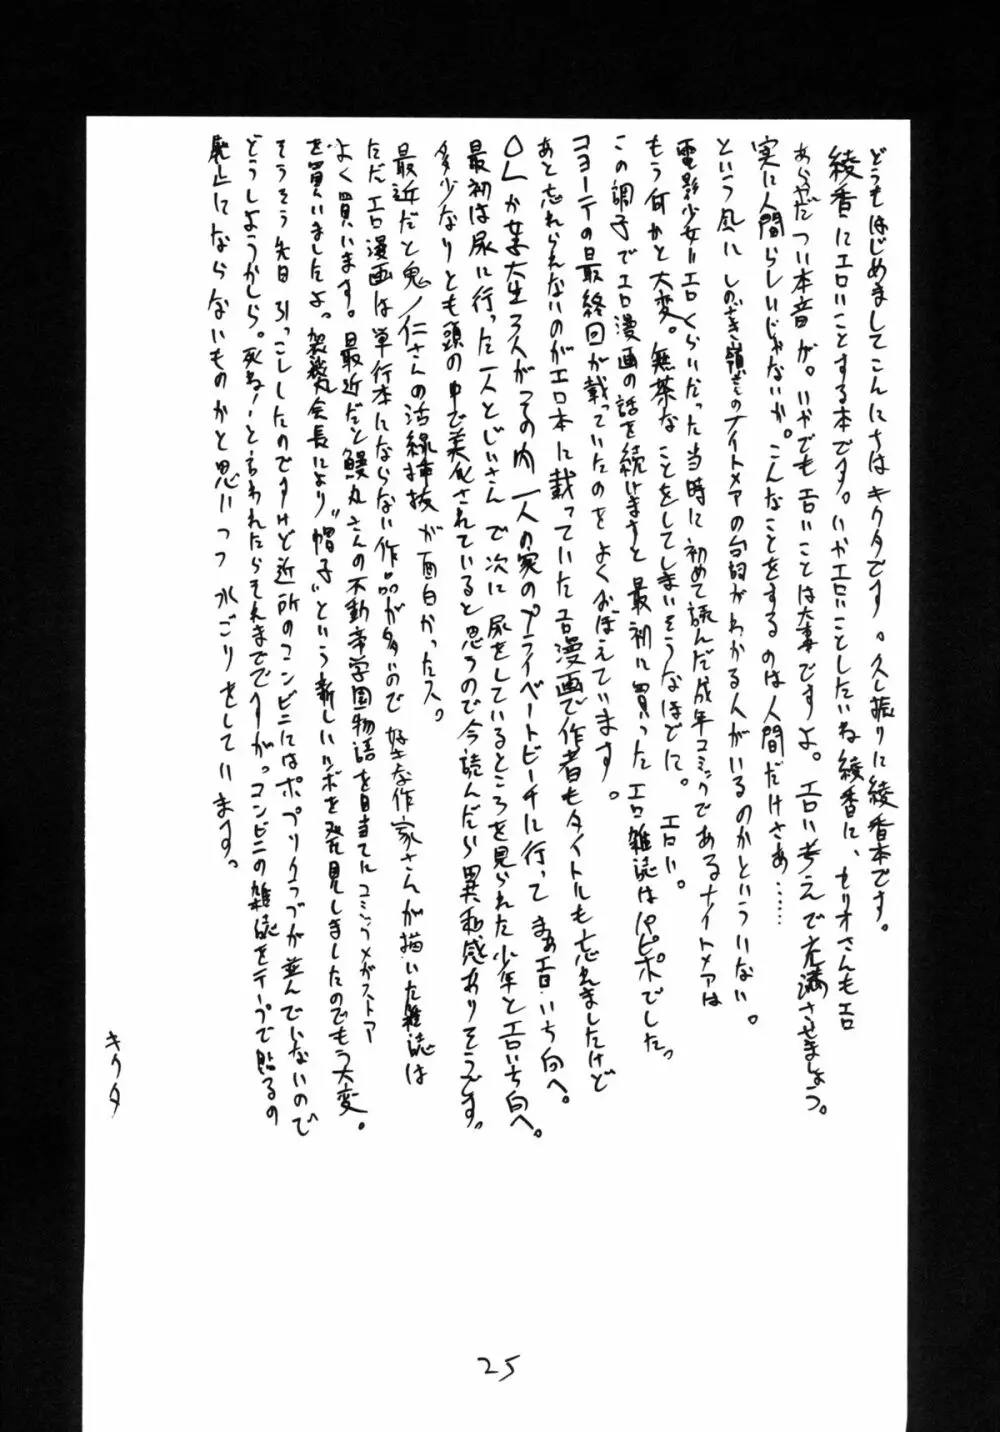 どうもはじめましてこんにちはキクタです。久し振りに綾香本です。
綾香にエロいことする本です。いやエロいことしたいね綾香に、セリオさんもエロ
あらやだつい本音が。いやでもエロいことは大事ですよ。エロい考えで充満させましょう。
実に人間らしいじゃないか。こんなことをするのは人間だけさぁ……
という風にしのざき嶺のナイトメアの台詞がわかる人がいるのかというい ない。
電影少女=エロくらいだった当時に初めて読んだ成年コミックであるナイトメアは
もう何かと大変。無茶なことをしてしまいそうなほどに。エロい。
この調子でエロ漫画の話を続けますと最初に買ったエロ雑誌はパピポでした。
コヨーテの最終回が載っていたのをよくおぼえています。
あと忘れられないのがエロ本に載っていたエロ漫画で作者もタイトルも忘れましたけど
OLか女子大生3人がその内一人の家のプライベートビーチに行ってまぁエロいち向へ。
最初は尿に行った一人とじいさんで次に尿をしているところを見られた少年とエロいち向へ。
多少なりとも頭の中で美化されていると思うので今読んだら異和感ありそうです。
最近だと鬼ノ仁さんの活線挿抜が面白かったス。
ただエロ漫画は単行本にならない作品が多いので好きな作家さんが描いた雑誌は
よく買います。最近だと鰻丸さんの不動帝学園物語を目当てにコミックメガストア
を買いましたよ。袈裟会長により"帽子"という新しいツボを発見しましたのでもう大変。
そうそう先日引っこししたのですけど近所のコンビニにはポプリクラブが並んでいないので
どうしようかしら。死ね!と言われたらそれまでですが。コンビニの雑誌をテープで貼るの
廃止にならないものかと思いつつ水ごりをしています。
キクタ
25